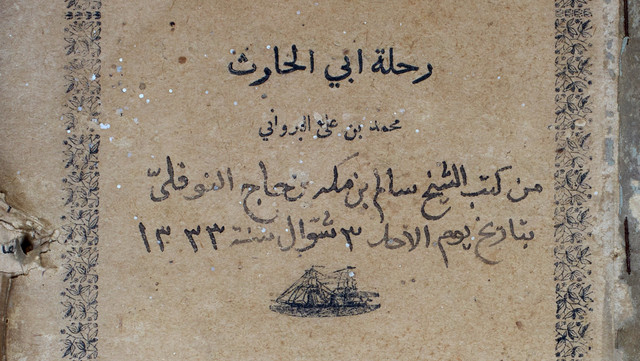 رحلة ابي الحارث
محمد بن علي البرواني
من كتب الشيخ سالم بن محمد بن حاج النوفليّ
بتاريخ يوم الاحد ٣ شوّال سنة ١٣٣٣